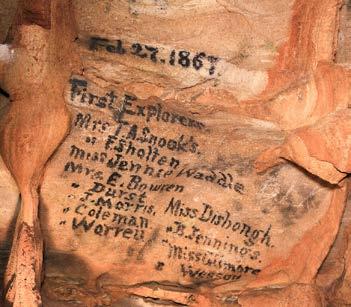 Feb 27. 1867.
First Explorers
Mrs. J. A. Snook's.
" F. Sholten
Miss Jennie Waddle
Mrs. E. Bowren
" Durst. Miss Dishongh.
" J. Morris, " B. Jenning's.
" Coleman Miss Gilmore
" Warren " Wesson